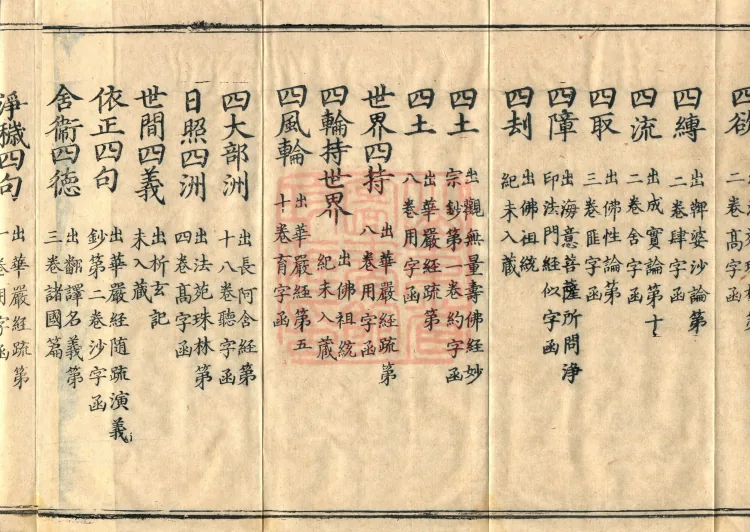 四欲
四縛 出鞞婆沙論第
二卷肆字函
四流 出成實論第十
二卷舍字函
四取 出佛性論第
三卷匪字函
四障 出海意菩薩所問淨
印法門經似字函
四刦 出佛祖統
紀未入藏
四土 出觀無量壽佛經妙
宗鈔第一卷約字函
四土 出華嚴經疏第
八卷用字函
世界四持 出華嚴經疏第
八卷用字函
四輪持世界 出佛祖統
紀未入藏
四風輪 出華嚴經第五
十卷育字函
四大部洲 出長阿含經第
十八卷聽字函
日照四洲 出法苑珠林第
四卷髙字函
世間四義 出析玄記
未入藏
依正四句 出華嚴經随疏演義
鈔第二卷沙字函
舍衞四德 出翻譯名義第
三卷諸國篇
淨穢四句 出華嚴經疏第
一卷用字函